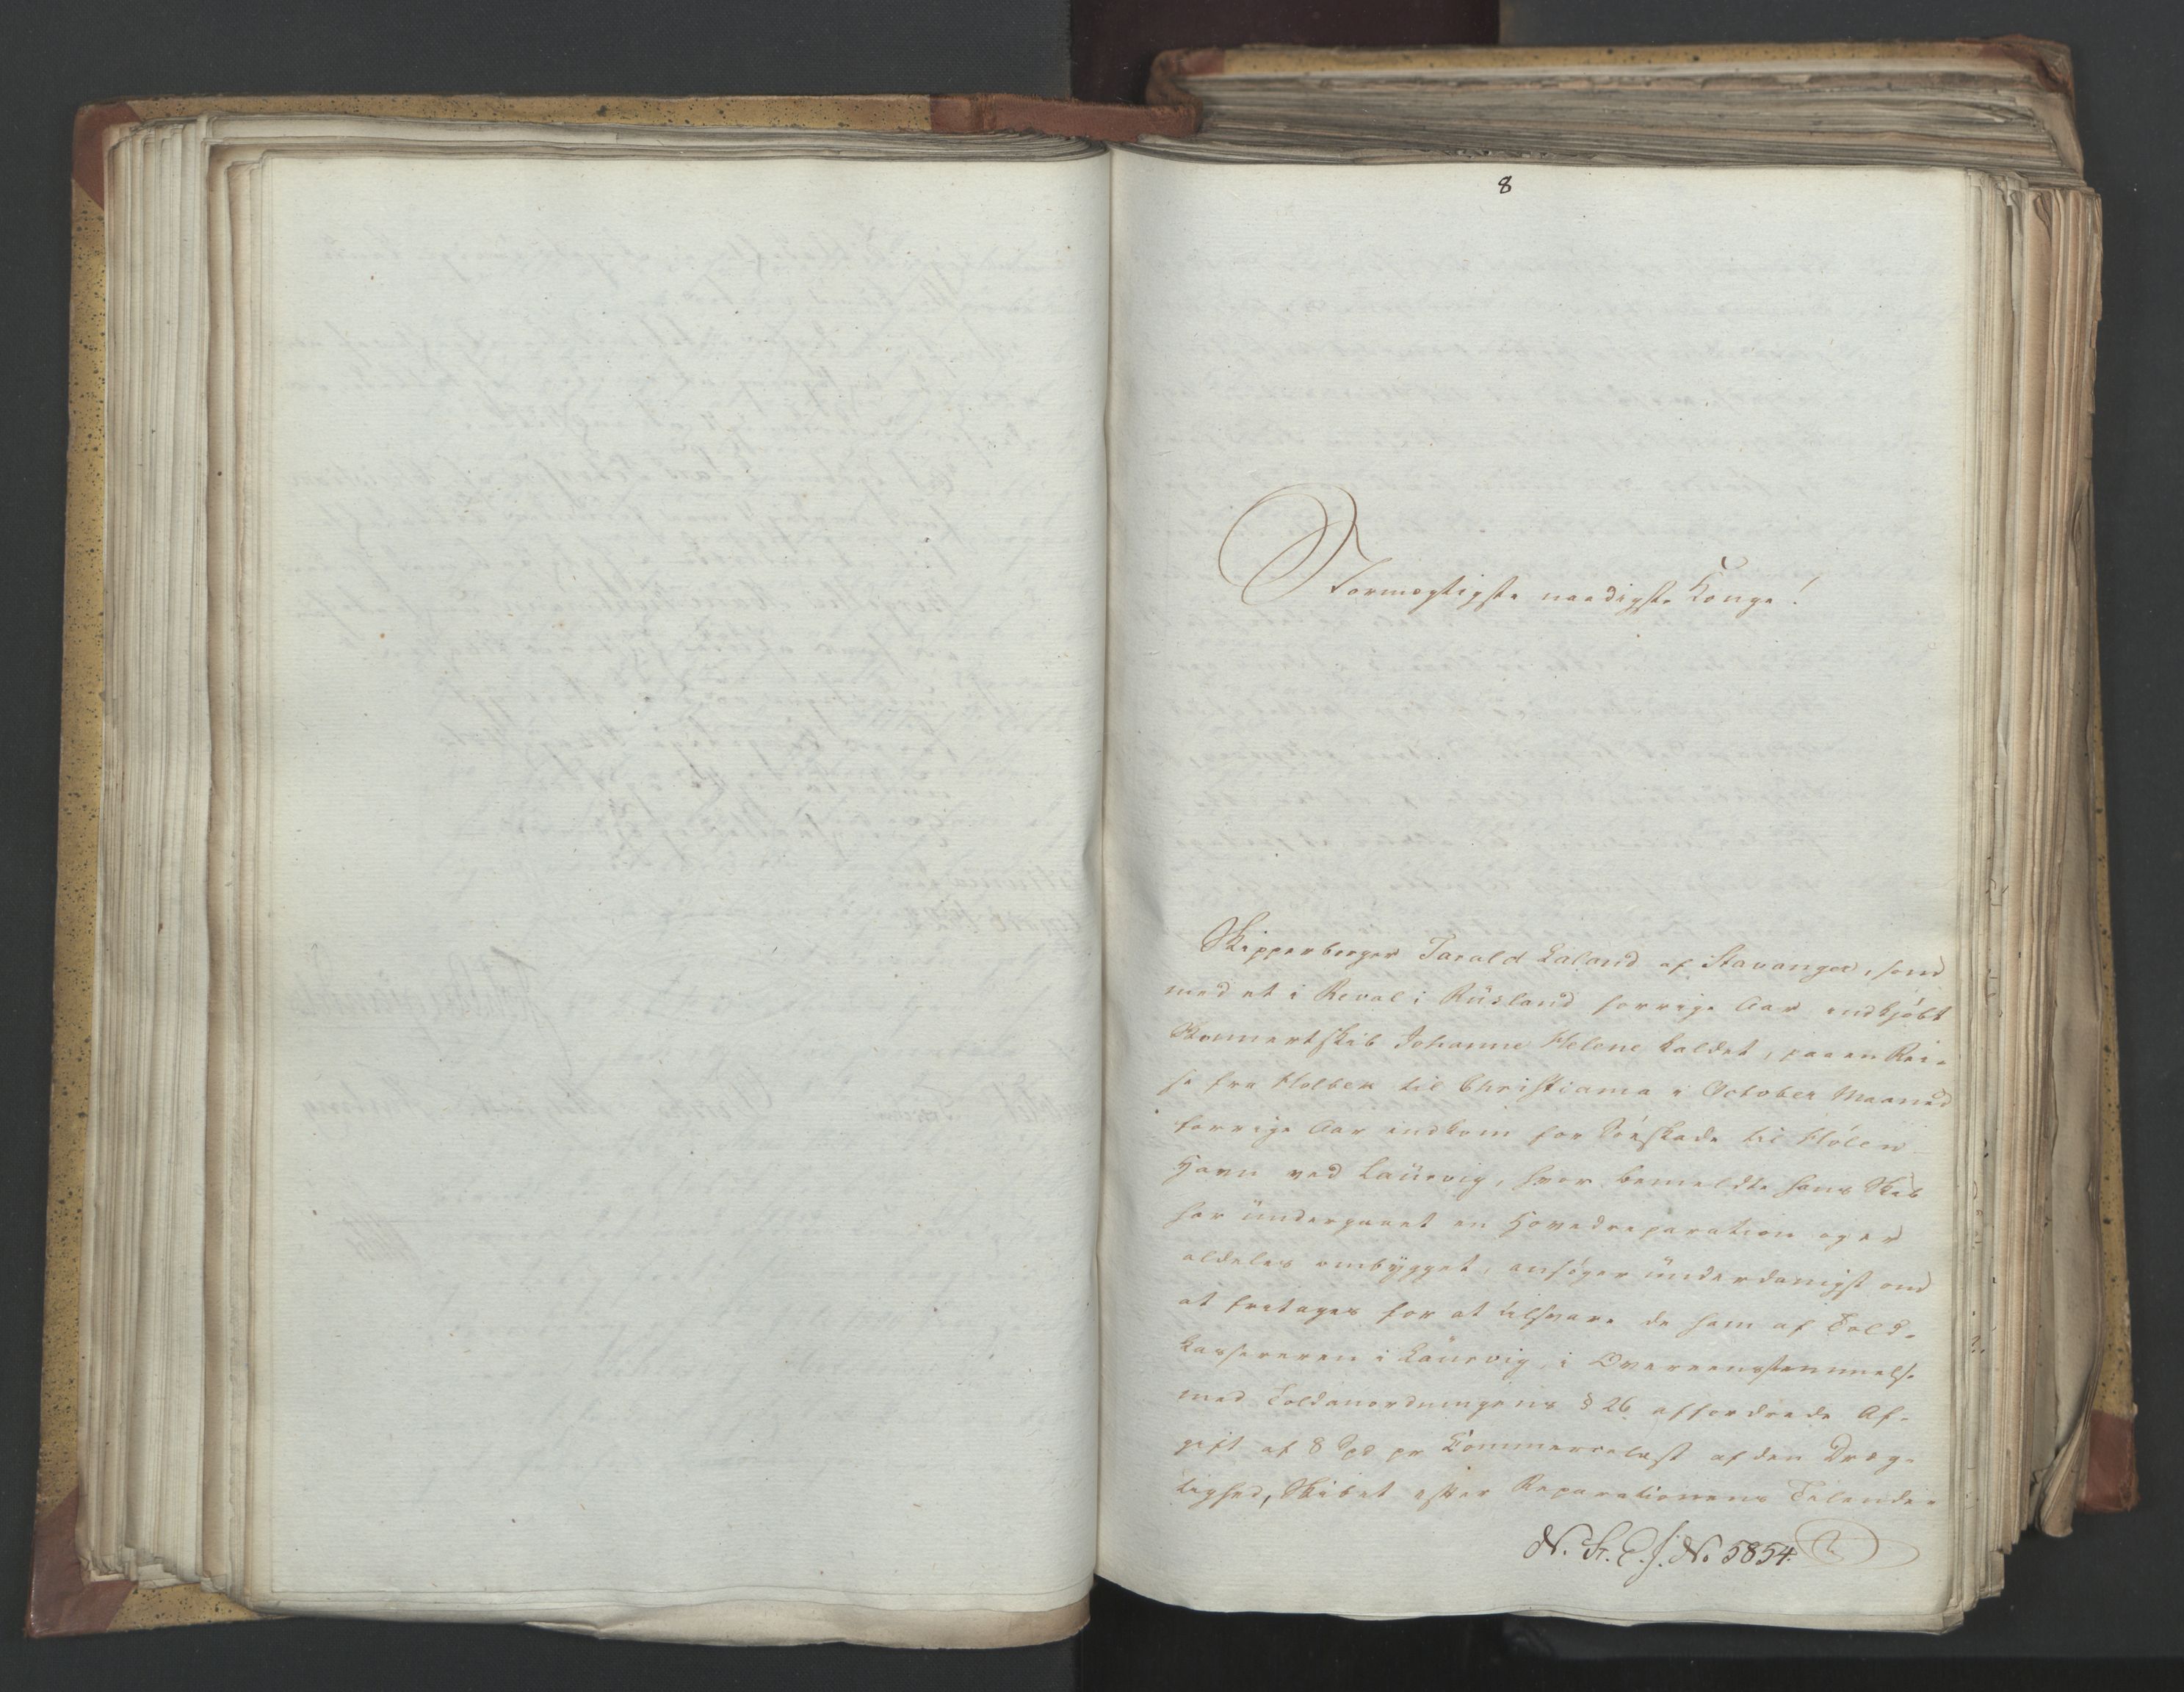 8
Stormægtigste naadigste Konge!
Skipperborger Tarald Laland af Stavanger, som
med et i Reval i Rüsland forrige Aar indkjøbt
Skonnertskib Johanne Helene kaldet, paa en Rei-
se fra Holbek til Christiania i October Maaned
forrige Aar indkom for Søeskade til Hølen
Havn ved Laürvig, hvor bemeldte hans Skib
har ündergaaet en Hovedreparation og er
aldeles ombygget, ansøger ünderdanigst om
at fritages for at tilsvare de ham af Told-
kassereren i Laürvig i Overeensstemmelse
med Toldanordningens § 26 affordrede Af-
gift af 8 Spd pr Commercelæst af den Dræg-
tighed, Skibet efter Reparationens Tilende-
N. St. C. J. No 5854.